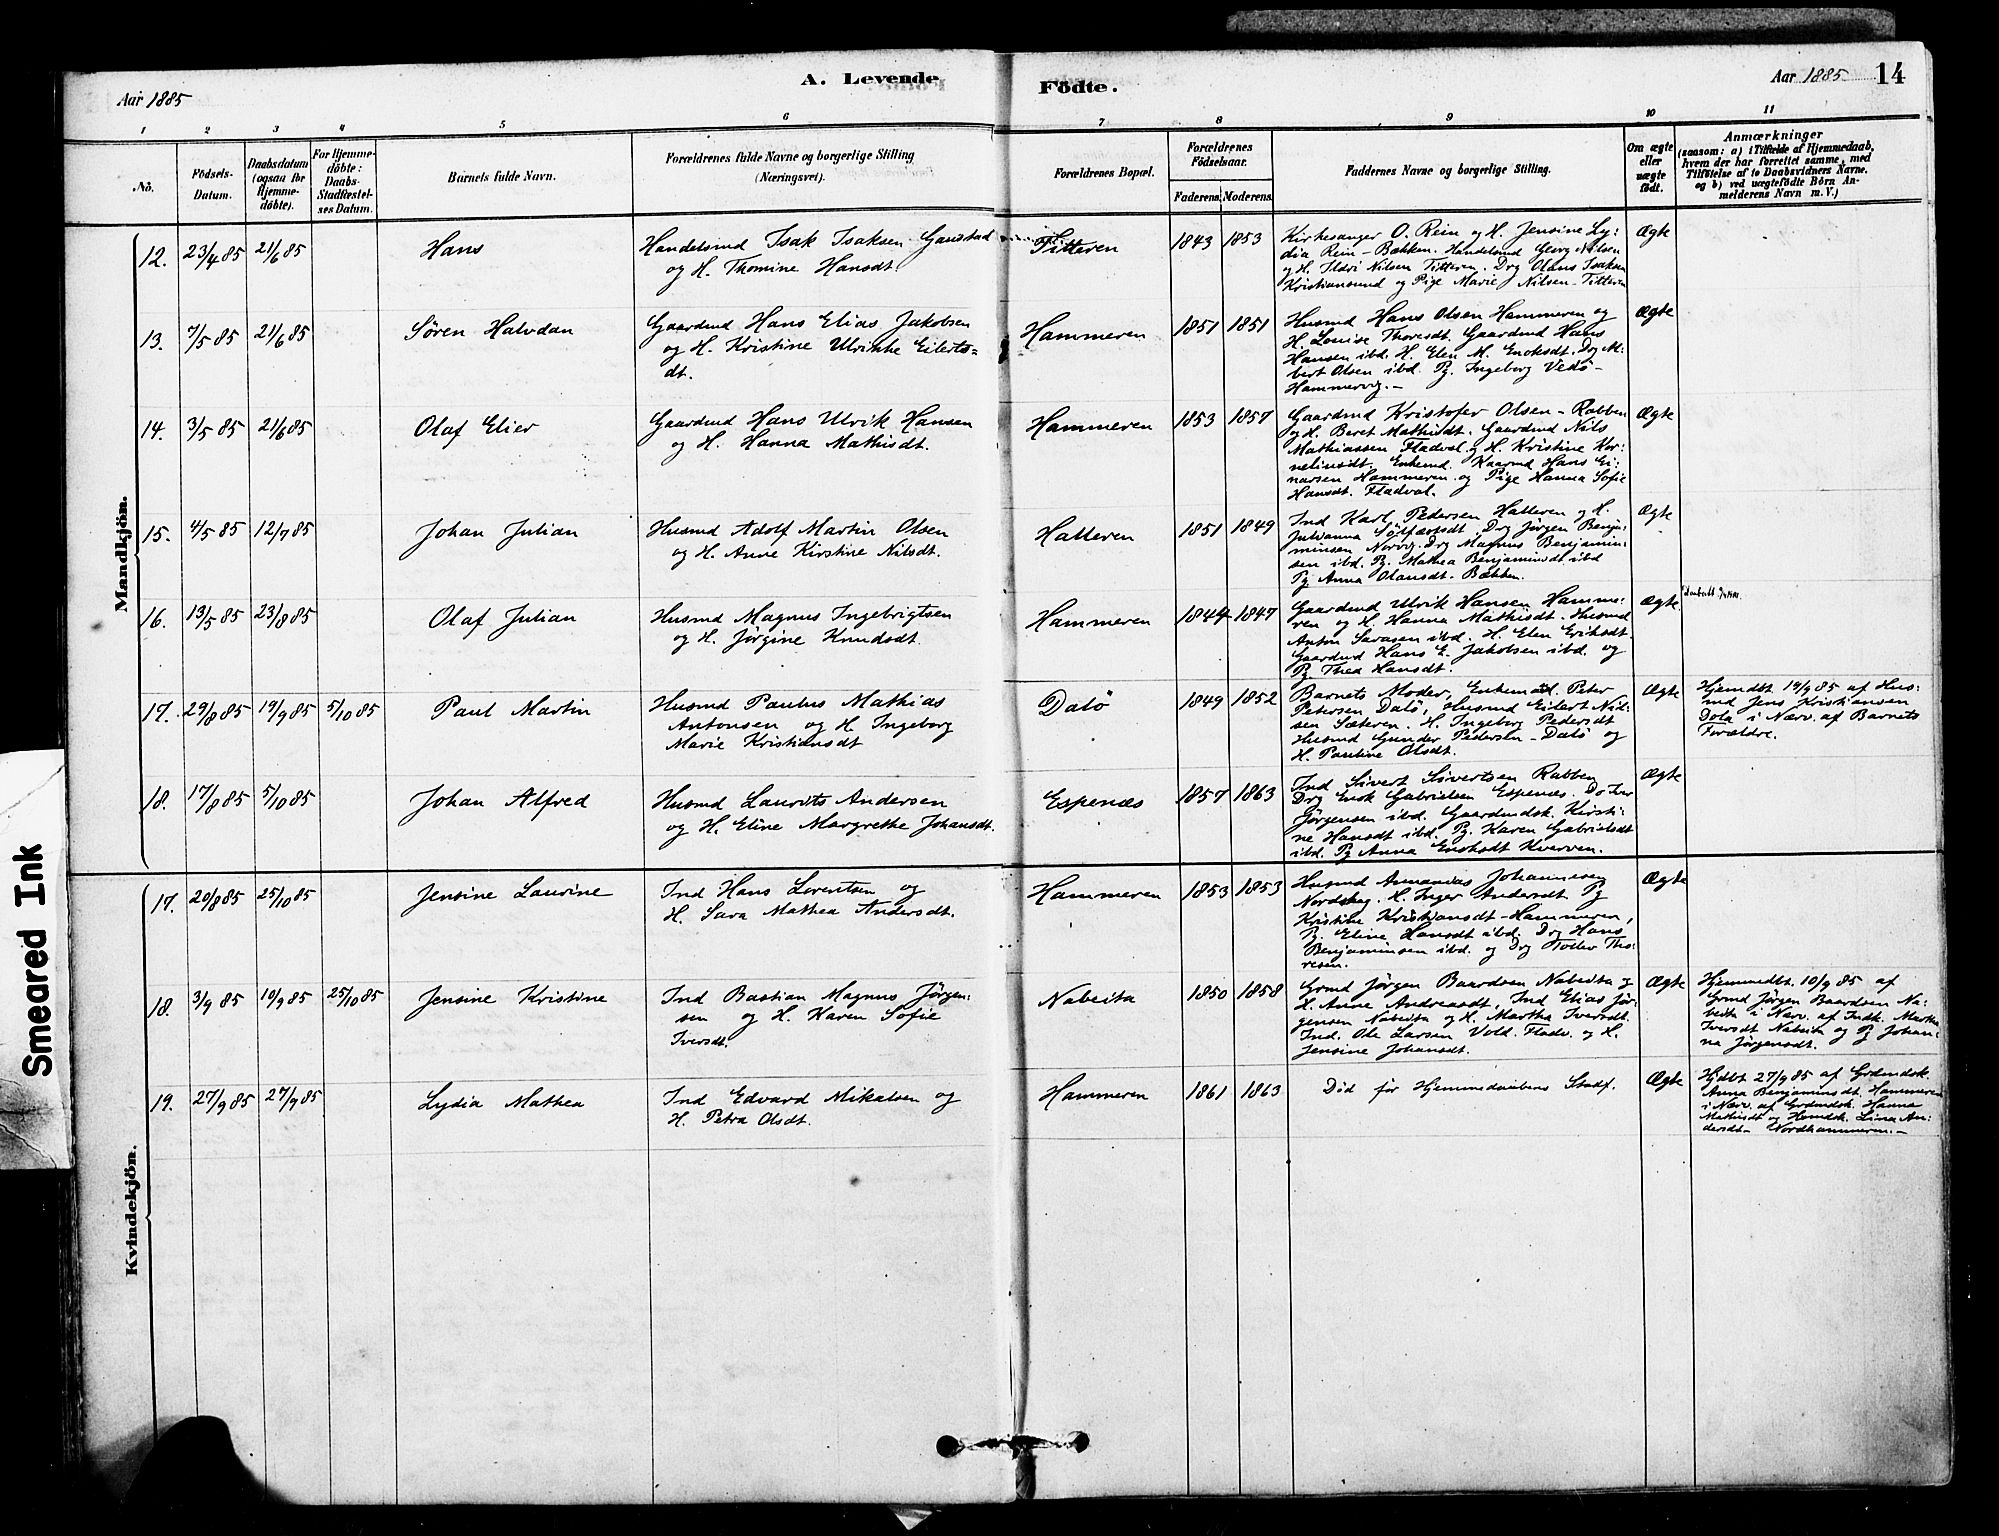 Aar 1885
A. Levende
Födte.
Aar 1885
14
1 2 3 4 5 6 7 8 9 10 11
No.
Födsels-
Datum.
Daabsdatum
(ogsaa for
Hjemme-
döbte).
For Hjemme-
döbte:
Daabs-
Stadfæstel-
ses Datum.
Barnets fulde Navn.
Forældrenes fulde Navne og borgerlige Stilling
(Næringsvei).
Forældrenes Bopæl.
Forældrenes
Födselsaar.
Faderens. Moderens.
Faddernes Navne og borgerlige Stilling.
Om ægte
eller
uægte
födt.
Anmærkninger
(saasom: a) i Tilfælde af Hjemmedaab,
hvem der har forrettet samme, med
Tilföielse af to Daabsvidners Navne.
og b) ved uægtefödte Börn An-
melderens Navn m.V.)
Mandkjön.
12. 23/4 85 21/6 85
Hans
Handelsmd Isak Isaksen Garstad
og H. Thomine Hansdt.
Titteren
1843 1853
Kirkesanger O. Rein og H. Jensine Ly-
dia Rein - Bækken. Handelsmd Georg Nilsen
og H. Ildri Nilsen Titteren. Drg Olaus Isaksen
Kristiansund og Pige Marie Nilsen - Titteren
Ægte
13. 7/5 85 21/6 85
Søren Halvdan
Gaardmd Hans Elias Jakobsen
og H. Kristine Ulrikke Eilerts=
dt.
Hammeren
1851 1851
Husmd Hans Olsen Hammeren og
H. Louise Thoresdt. Gaardmd Hans
Hansen ibd. H. Elen M. Enoksdt. Drg M.
Olsen ibd. Pg. Ingeborg Vedø -
Hammervg. -
Ægte
14. 3/5 85 21/6 85
Olaf Elier
Gaardmd Hans Ulrik Hansen
og H. Hanna Mathisdt.
Hammeren
1853 1857
Gaardmd Kristofer Olsen - Rabben
og H. Beret Mathisdt. Gaardmd Nils
Mathiassen Fladval og H. Kristine Kor-
neliusdt. Enkemd. Kaarmd Hans Ei-
narsen Hammeren og Pige Hanna Sofie
Hansdt. Fladval.
Ægte
15. 4/5 85 12/7 85
Johan Julian
Husmd Adolf Martin Olsen
og H. Anne Kirstine Nilsdt.
Hatteren
1851 1849
Ind Karl Pedersen Hatteren og H.
Julianna Drg Jørgen Benja-
minsen Norvg. Drg Magnus Benjamin-
sen ibd. Pg. Mathea Benjaminsdt ibd
Pg. Anna Olausdt. Bækken.
Ægte
16. 13/5 85 23/8 85
Olaf Julian
Husmd Magnus Ingebrigtsen
og H. Jørgine Knudsdt.
Hammeren
1844 1847
Gaardmd Ulrik Hansen Hamme-
ren og H. Hanna Mathisdt. Husmd
Anton Sarasen ibd. H. Elen Eriksdt
Gaardmd Hans E. Jakobsen ibd. og
Pg. Thea Hansdt.
Ægte
17. 29/8 85 19/9 85 5/10 85
Paul Martin
Husmd Paulus Mathias
Antonsen og H. Ingeborg
Marie Kristiansdt
Dalö
1849 1852
Barnets Moder, Enkemd. Peter
Petersen Dalö, Husmd Eilert Nil-
sen Sæteren. H. Ingeborg Pedersdt
Husmd Gunder Pedersen - Dalö og
H. Pauline Olsdt.
Ægte
Hjemdbt 19/9 85 af Hus-
md Jens Kristiansen
i Nærv. af Barnets
Forældre.
18. 17/8 85 5/10 85
Johan Alfred
Husmd Laurits Andersen
og H. Eline Margrethe Johansdt.
Espenæs
1857 1863
Ind Sivert Sivertsen Rabben
Drg Enok Gabrielsen Espenæs. Do Iver
Jørgensen ibd. Gaardmdsk. Kirsti-
ne Hansdt ibd. Pg. Karen Gabrielsdt
ibd. Pg Anna Enoksdt Kverven.
Ægte
Kvindekjön.
17. 20/8 85 25/10 85
Jensine Laurine
Ind Hans Lorentsen og
H. Sara Mathea Andersdt.
Hammeren
1853 1853
Husmd Annanias Johannesen
Nordskag. H. Inger Andersdt Pg
Kristine Kristiansdt - Hammeren,
Pg. Eline Hansdt ibd. Drg Hans
Benjaminsen ibd. og Drg Toller Tho-
resen.
Ægte
18. 3/9 85 10/9 85 25/10 85
Jensine Kristine
Ind Bastian Magnus Jørgen-
sen og H. Karen Sofie
Iversdt.
Nabeita
1850 1858
Grmd Jörgen Baardsen Nabeita og
H. Anne Andreasdt, Ind Elias Jør-
gensen Nabeita og H. Martha Iversdt.
Ind. Ole Larsen Vold. Fladv. og H.
Jensine Johansdt.
Ægte
Hjemmdbt. 10/9 85 af
Grmd Jörgen Baardsen Na-
beita i Nærv. af Indk. Martha
Iversdt Nabeita og Pg Johan-
na Jørgensdt.
19. 27/9 85 27/9 85
Lydia Mathea
Ind Edvard Mikalsen og
H. Petra Olsdt.
Hammeren
1861 1863
Död før Hjemmedaabens Stadf.
Ægte
Hjdbt 27/9 85 af Grdmdsk.
Anna Benjaminsdt. Hammeren
i Nærv. af Grdmdsk. Hanna
Mathisdt og Husmdsk. Lina An-
dersdt - Nordhammeren. -
Smeared Ink